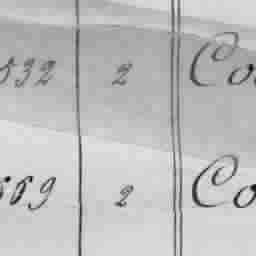 532 2 Co
559 2 Co